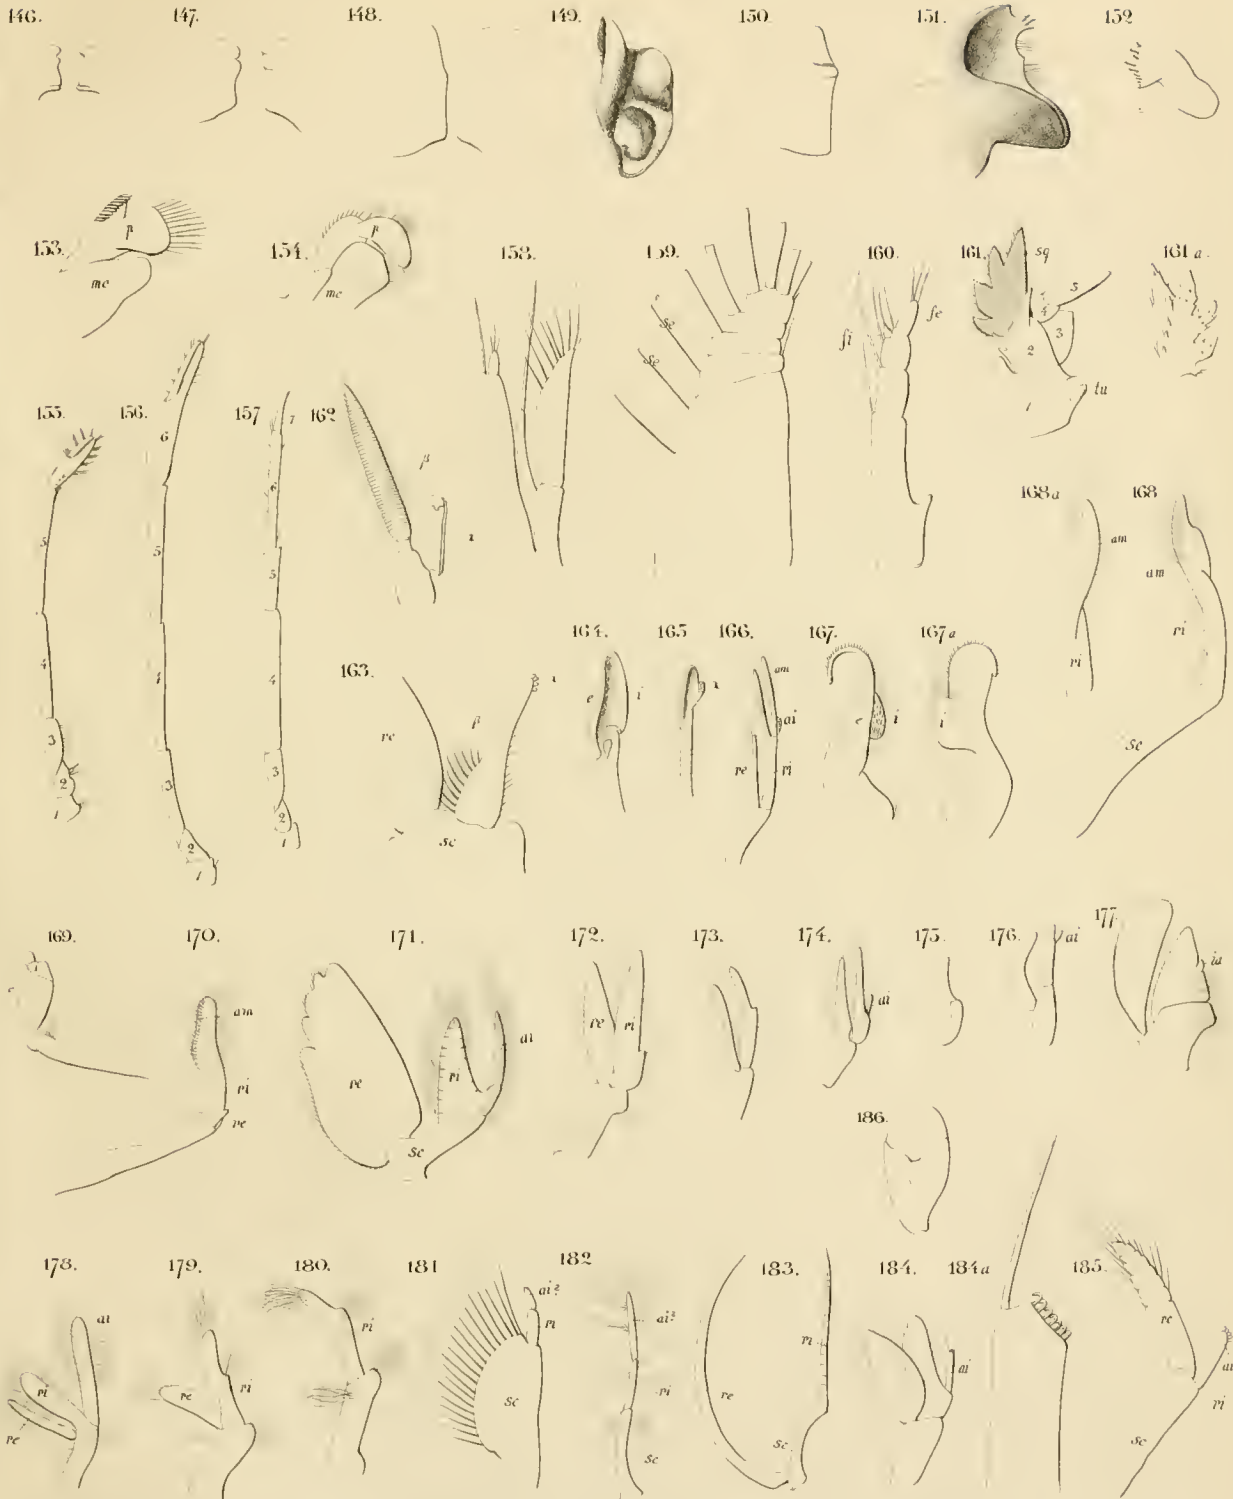 146. 147. 148. 149. 150. 151. 152
153. p mc 154. p mc 158. 159. se se 160. fi fe 161. sq 5 4 3 2 1 tu 161 a.
155. 5 4 3 2 1 156. 6 5 4 3 2 1 157 7 6 5 4 3 2 1 162 p 168 a am ri 168 am ri sc
163. re p sc 164. e i 165 166. am ai re ri 167. e i 167 a i
169. 170. am ri re 171. re ri ai sc 172. re ri 173. 174. ai 175. 176. ai 177. ia
186.
178. ai ri re 179. re ri 180. ri 181 ai? ri sc 182 ai? ri sc 183. re ri sc 184. ai 184 a 185. re ai ri sc